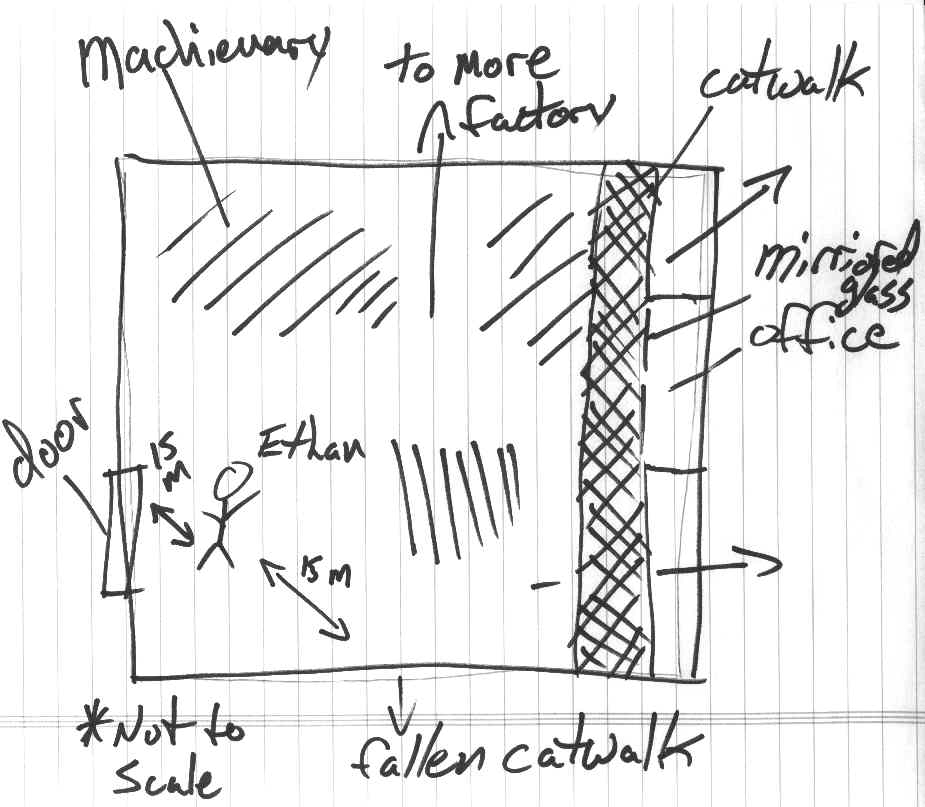 Machienary
to More
factory
catwalk
mirriored
glass
office
door
15
M
Ethan
15 M
*Not to
Scale
fallen catwalk